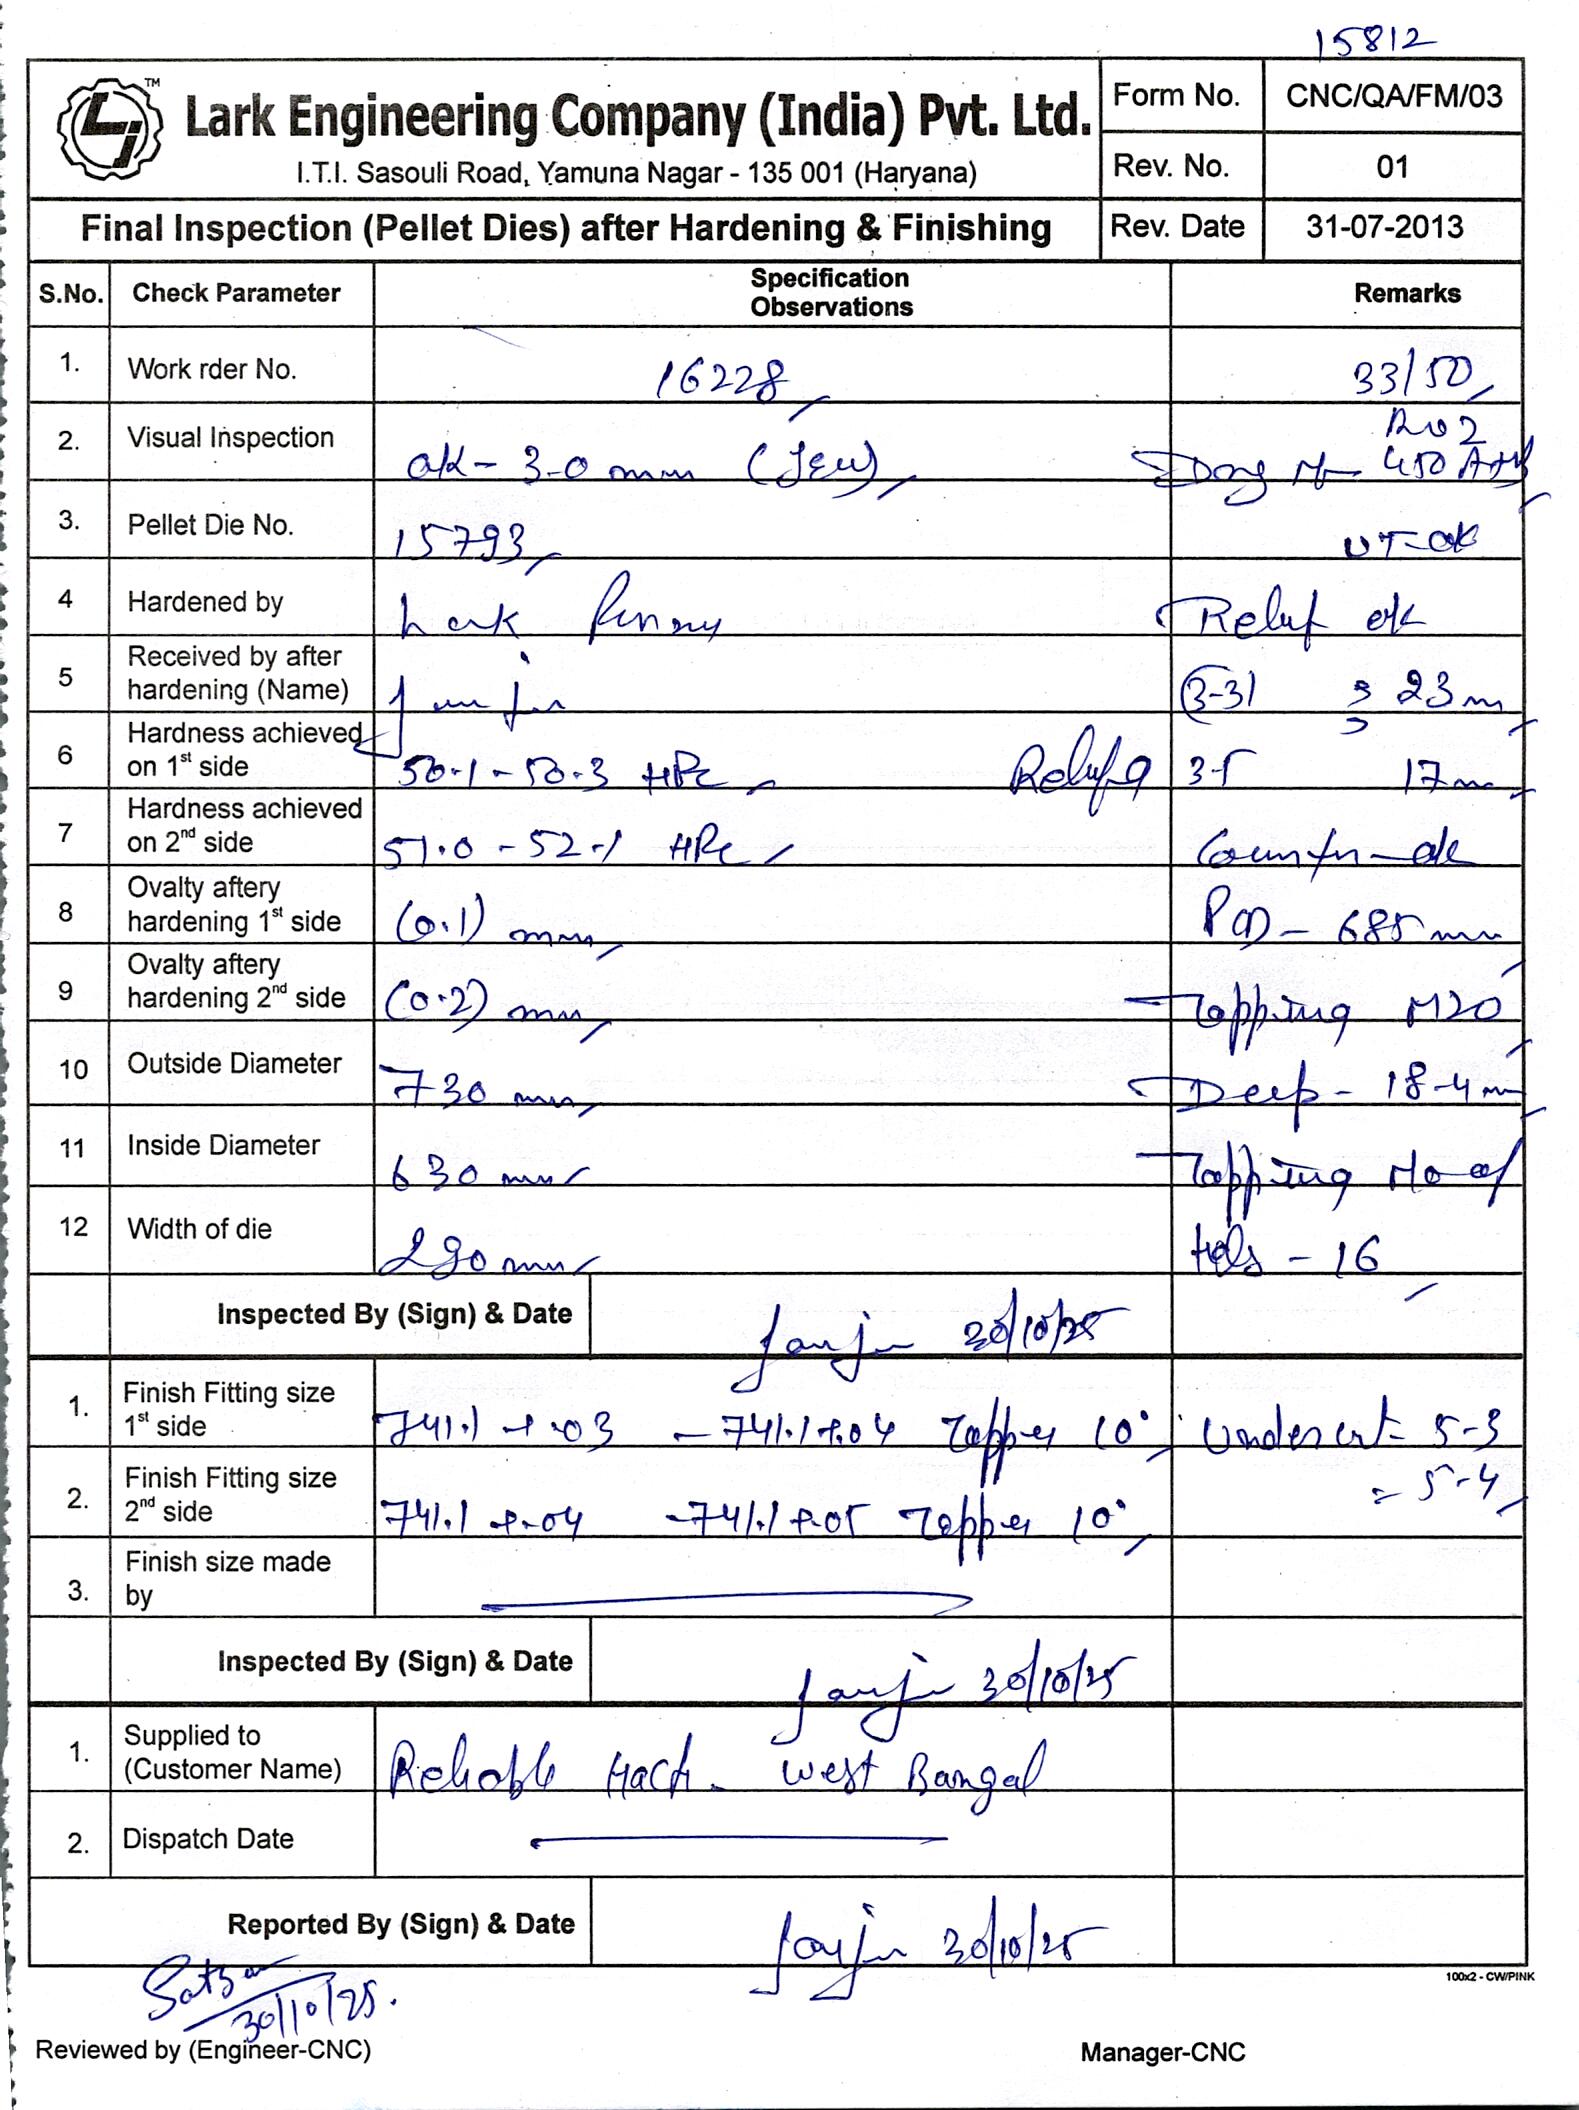 15812
TM
Lark Engineering Company (India) Pvt. Ltd.
I.T.I. Sasouli Road, Yamuna Nagar - 135 001 (Haryana)
Form No. CNC/QA/FM/03
Rev. No. 01
Final Inspection (Pellet Dies) after Hardening & Finishing
Rev. Date 31-07-2013
S.No. Check Parameter Specification Observations Remarks
1. Work rder No. 16228 33/50
2. Visual Inspection ok - 3.0 mm
450
3. Pellet Die No. 15793 UT-ok
4 Hardened by Lark ok
5 Received by after hardening (Name) 23 m
6 Hardness achieved on 1st side 50.1 - 50.3 HRc 3.5 17 m
7 Hardness achieved on 2nd side 51.0 - 52.1 HRc - ok
8 Ovalty aftery hardening 1st side (0.1) mm PCD - 685 mm
9 Ovalty aftery hardening 2nd side (0.2) mm Tapping M20
10 Outside Diameter 730 mm Deep - 18.4 m
11 Inside Diameter 630 mm Tapping No of
12 Width of die 290 mm Hols - 16
Inspected By (Sign) & Date 30/10/25
1. Finish Fitting size 1st side 741.1 +.03 - 741.1+.04 Tapper 10° Undercut = 5.3
= 5.4
2. Finish Fitting size 2nd side 741.1 +.04 - 741.1+.05 Tapper 10°
3. Finish size made by
Inspected By (Sign) & Date 30/10/25
1. Supplied to (Customer Name) Reliable Hach - West Bangal
2. Dispatch Date
Reported By (Sign) & Date 30/10/25
100x2 - CW/PINK
30/10/25.
Reviewed by (Engineer-CNC) Manager-CNC